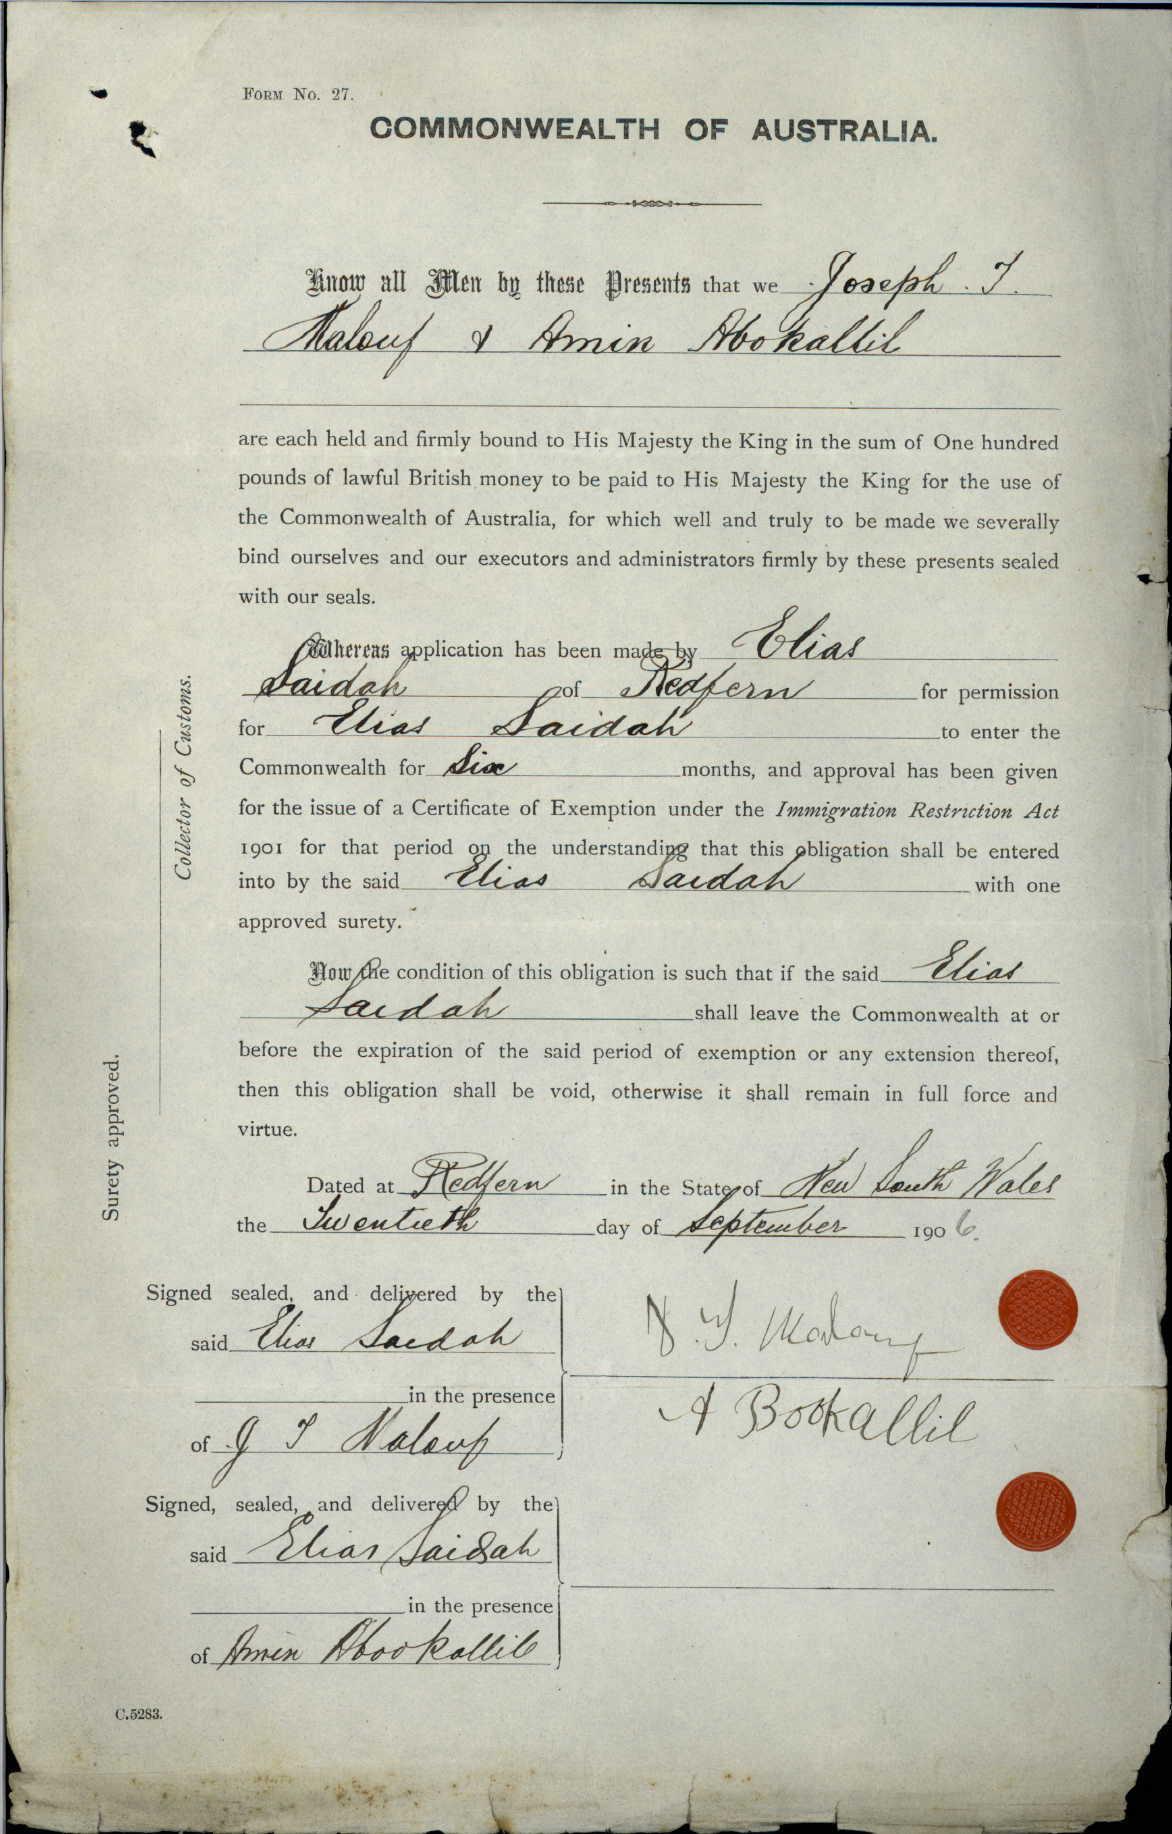 FORM No. 27.
COMMONWEALTH OF AUSTRALIA.
Know all Men by these Presents that we Joseph. T.
Malouf & Amin Abokallil
are each held and firmly bound to His Majesty the King in the sum of One hundred
pounds of lawful British money to be paid to His Majesty the King for the use of
the Commonwealth of Australia, for which well and truly to be made we severally
bind ourselves and our executors and administrators firmly by these presents sealed
with our seals.
Whereas application has been made by Elias
Saidah of Redfern for permission
for Elias Saidah to enter the
Commonwealth for Six months, and approval has been given
for the issue of a Certificate of Exemption under the Immigration Restriction Act
1901 for that period on the understanding that this obligation shall be entered
into by the said Elias Saidah with one
approved surety.
Now the condition of this obligation is such that if the said Elias
Saidah shall leave the Commonwealth at or
before the expiration of the said period of exemption or any extension thereof,
then this obligation shall be void, otherwise it shall remain in full force and
virtue.
Dated at Redfern in the State of New South Wales
the Twentieth day of September 1906.
Signed sealed, and delivered by the
said Elias Saidah
in the presence
of J T Malouf
J. T. Malouf
A Bookallil
Signed, sealed, and delivered by the
said Elias Saidah
in the presence
of Amin Abookallil
C.5283.
Surety approved.
Collector of Customs.